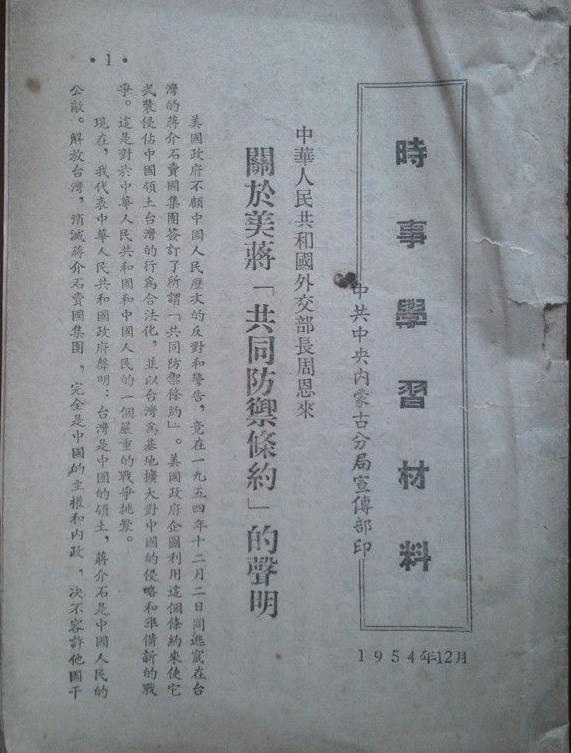 時事學習材料
中共中央内蒙古分局宣傳部印
1954年12月
中華人民共和國外交部長周恩來
關於美蔣「共同防禦條約」的聲明
美國政府不顧中國人民歷次的反對和警告，竟在一九五四年十二月二日同逃竄在台
灣的蔣介石賣國集團簽訂了所謂「共同防禦條約」。美國政府企圖利用這個條約來使它
武裝侵佔中國領土台灣的行爲合法化，並以台灣爲基地擴大對中國的侵略和準備新的戰
爭。這是對於中華人民共和國和中國人民的一個嚴重的戰爭挑釁。
現在，我代表中華人民共和國政府聲明：台灣是中國的領土，蔣介石是中國人民的
公敵。解放台灣，消滅蔣介石賣國集團，完全是中國的主權和内政，决不容許他國干
·1·